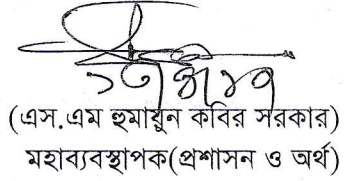 (এস.এম হুমায়ুন কবির সরকার)
মহাব্যবস্থাপক(প্রশাসন ও অর্থ)